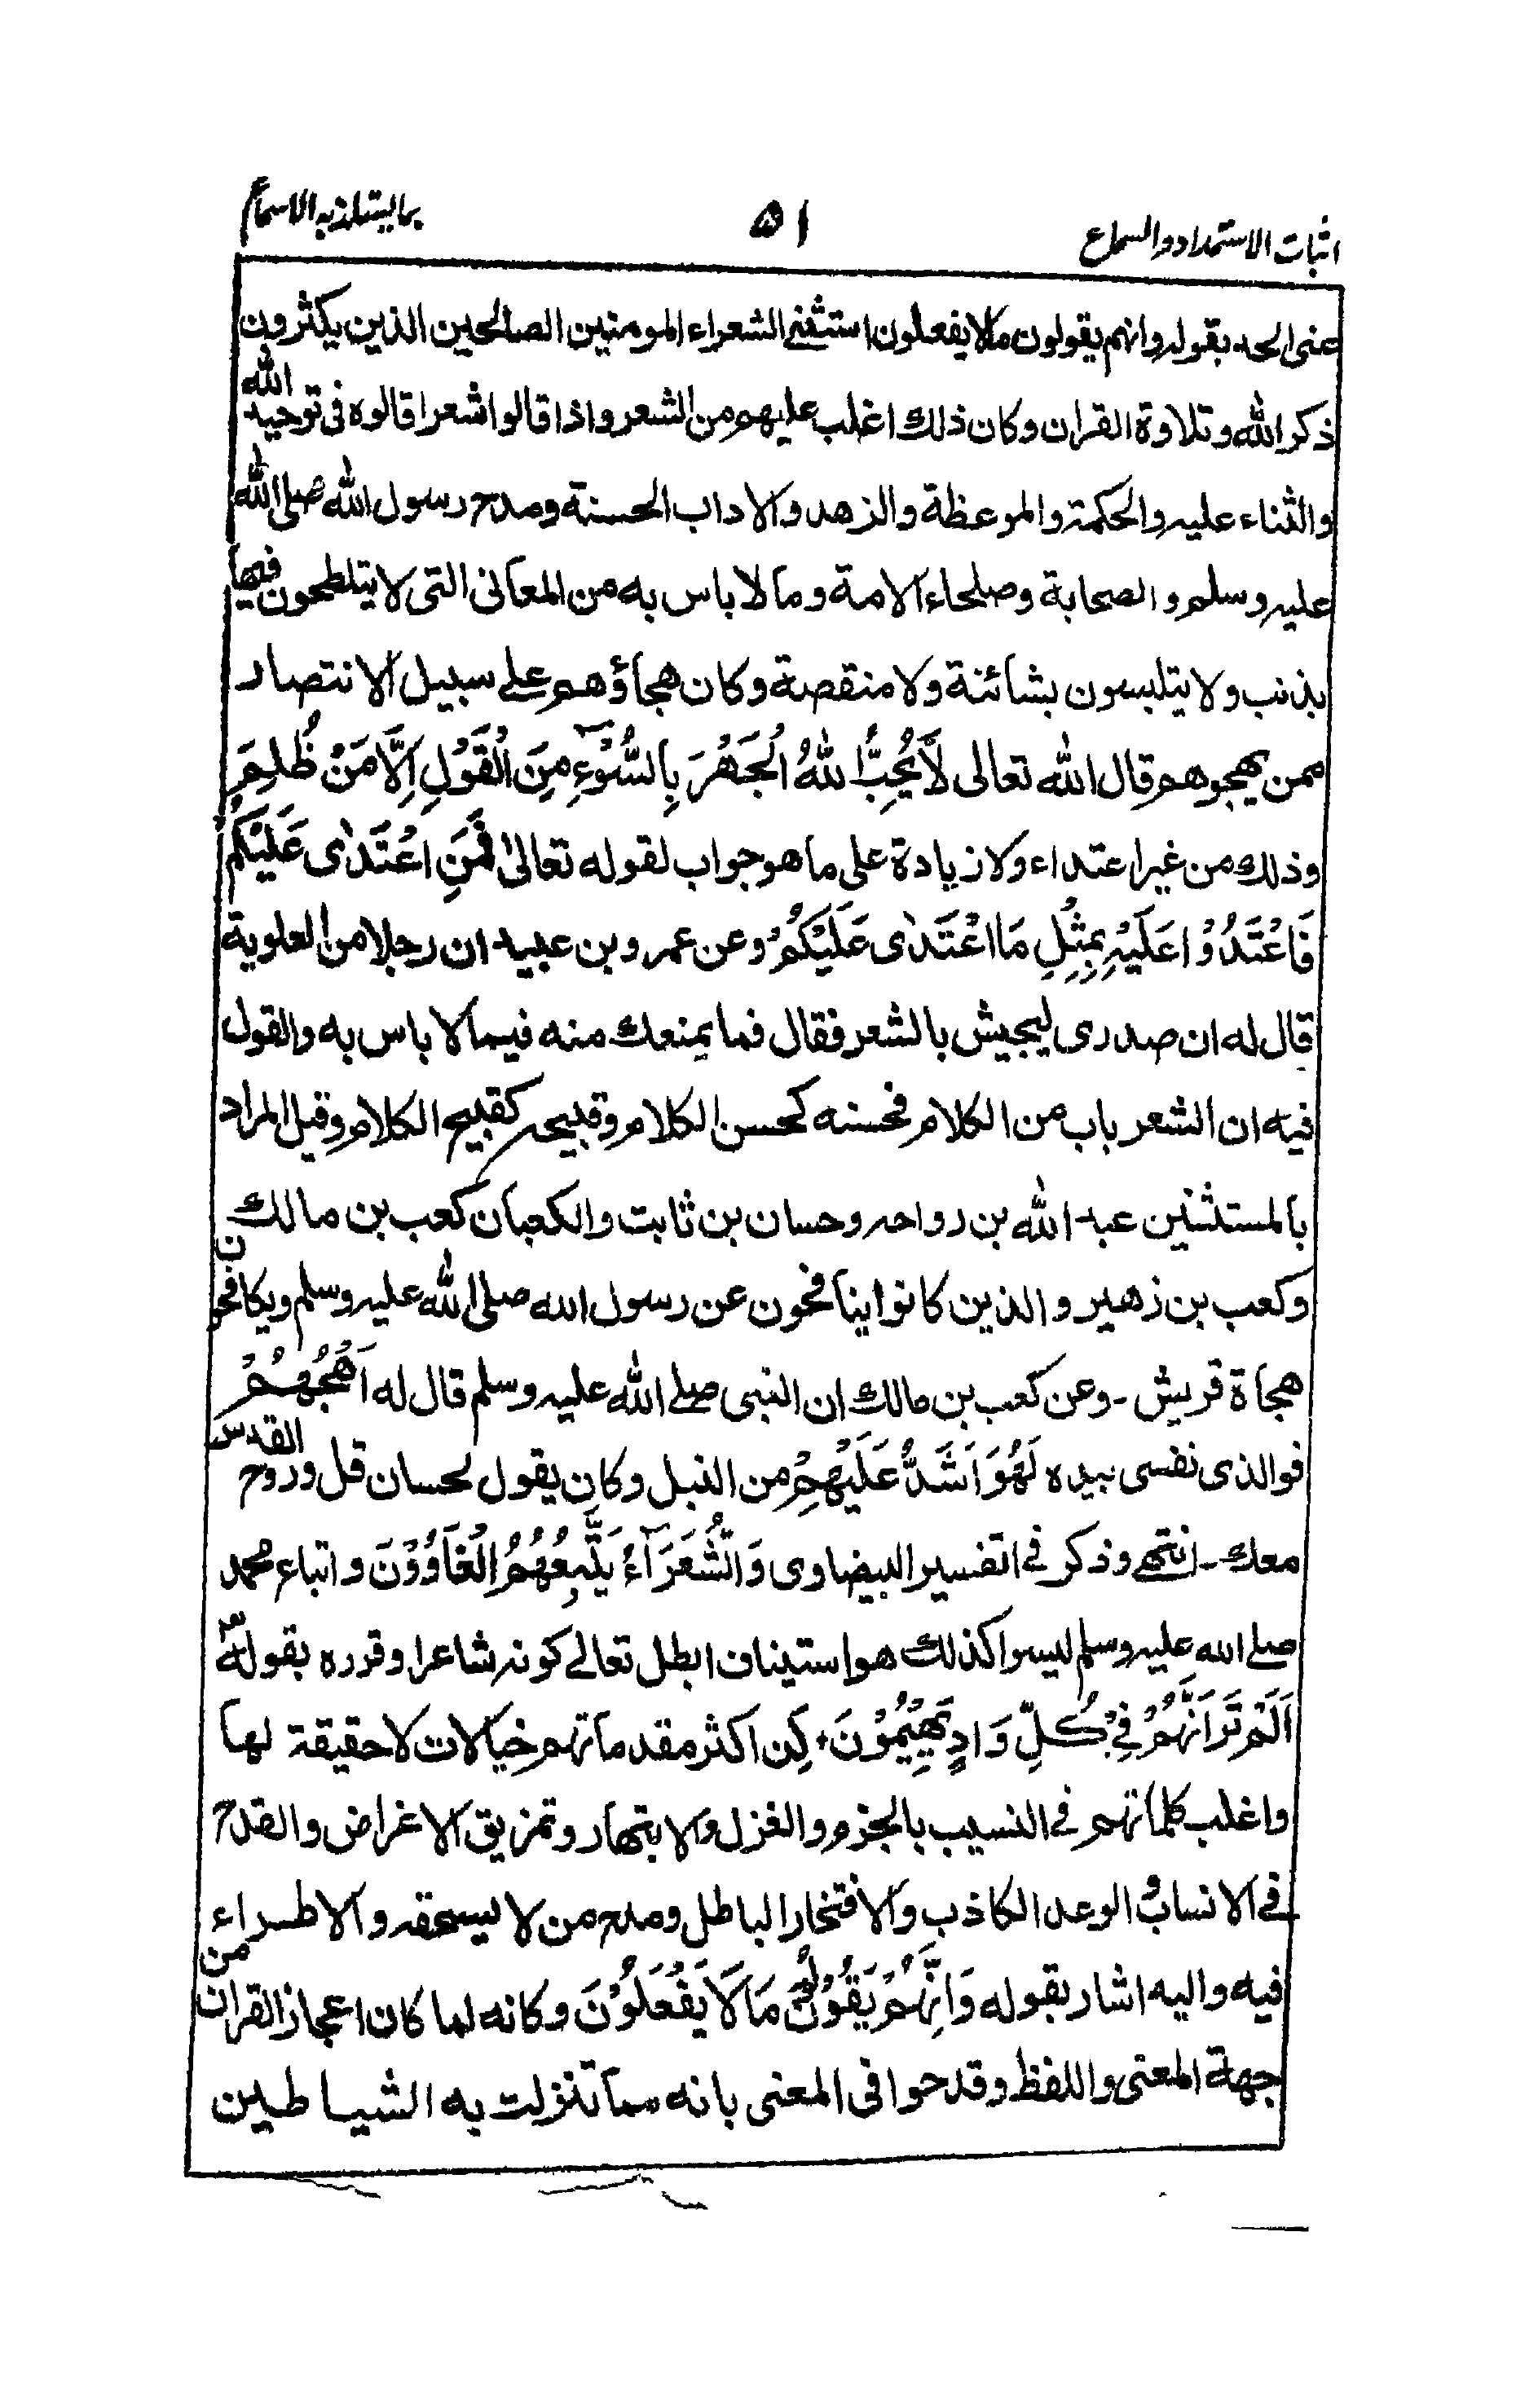 اثبات الاستمداد والسماع ۵۱ بما یستلذ به الاسماع
عنی الحد بقوله وانهم یقولون مالا یفعلون استثنے الشعراء المومنین الصالحین الذین یکثرون
ذکر الله وتلاوة القران وکان ذلك اغلب علیهم من الشعر واذا قالوا شعرا قالوه فی توحید الله
والثناء علیه والحکمة والموعظة والزهد والاداب الحسنة ومدح رسول الله صلی الله
علیه وسلم والصحابة وصلحاء الامة وما لا باس به من المعانی التی لا یتلطحون فیها
بذنب ولا یتلبسون بشائنة ولا منقصة وکان هجاؤهم علے سبیل الانتصار
ممن یهجوهم قال الله تعالی لَا یُحِبُّ اللهُ الْجَهْرَ بِالسُّوْٓءِ مِنَ الْقَوْلِ اِلَّا مَنْ ظُلِمَ
وذلك من غیر اعتداء ولا زیادة علی ما هو جواب لقوله تعالیٰ فَمَنِ اعْتَدٰی عَلَیْکُمْ
فَاعْتَدُوْا عَلَیْهِ بِمِثْلِ مَا اعْتَدٰی عَلَیْکُمْ وعن عمرو بن عبید ان رجلا من العلویة
قال له ان صدری لیجیش بالشعر فقال فما یمنعك منه فیما لا باس به والقول
فیه ان الشعر باب من الکلام فحسنه کحسن الکلام وقبیحه کقبیح الکلام وقیل المراد
بالمستثنین عبد الله بن رواحه وحسان بن ثابت والکعبان کعب بن مالك
وکعب بن زهیر والذین کانوا ینافحون عن رسول الله صلی الله علیه وسلم ویکافحون
هجاة قریش ۔ وعن کعب بن مالك ان النبی صلے الله علیه وسلم قال له اَهْجُهُمْ
فوالذی نفسی بیده لَهُوَ اَشَدُّ عَلَیْهِمْ من النبل وکان یقول لحسان قل وروح القدس
معك ۔ انتهے وذکر فے التفسیر البیضاوی وَالشُّعَرَآءُ یَتَّبِعُهُمُ الْغَاوُوْنَ واتباع محمد
صلے الله علیه وسلم لیسوا کذلك هو استیناف ابطل تعالے کونه شاعرا وقرره بقوله
اَلَمْ تَرَ اَنَّهُمْ فِیْ کُلِّ وَادٍ یَّهِیْمُوْنَ، لِن اکثر مقدماتهم خیالات لا حقیقة لها
واغلب کلماتهم فے النسیب بالجزم والغزل والابتهار وتمزیق الاغراض والقدح
فے الانساب والوعد الکاذب والافتخار الباطل ومدح من لا یستحقه والاطراء
فیه والیه اشار بقوله وَاَنَّهُمْ یَقُوْلُوْنَ مَا لَا یَفْعَلُوْنَ وکانه لما کان اعجاز القران من
جهة المعنی واللفظ وقدحوا فی المعنی بانه مما تنزلت به الشیاطین